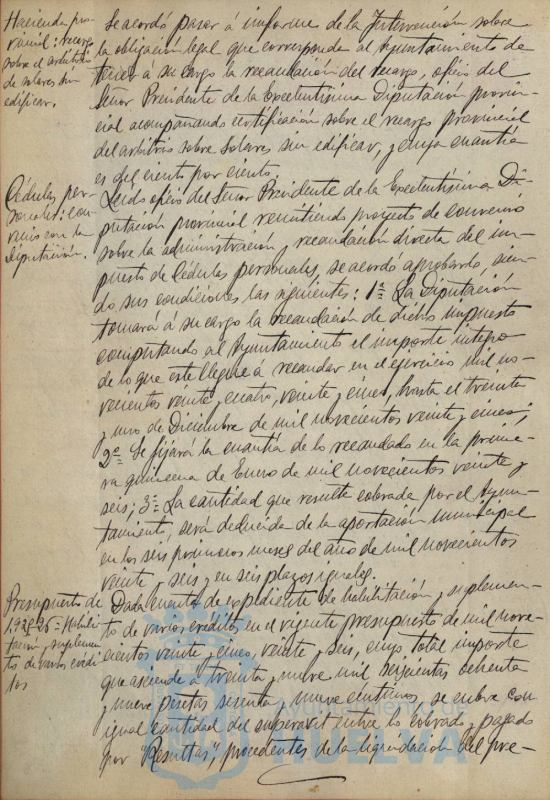 Hacienda pro-
vincial: recargo
sobre el arbitrio
de solares sin
edificar.
Se acordó pasar á informe de la Intervención sobre
la obligación legal que corresponda al Ayuntamiento de
tercer á su cargo la recaudación del recargo, oficio del
Señor Presidente de la Excelentísima Diputación provin-
cial acompañando certificación sobre el recargo provincial
del arbitrio sobre Solares sin edificar, y cuya cuantía
es del ciento por ciento.
Cédulas per-
sonales: con-
venio con la
Diputación.
Leido oficio del Señor Presidente de la Excelentísima Di-
putación provincial remitiendo proyecto de convenio
sobre la administración y recaudación directa del im-
puesto de Cédulas personales, se acordó aprobarlo, sien-
do sus condiciones las siguientes: 1ª La Diputación
tomará á su cargo la recaudación de dicho impuesto
computando al Ayuntamiento el importe íntegro
de lo que este llegue á recaudar en el ejercicio mil no-
vecientos veinte y cuatro, veinte y cinco, hasta el treinta
y uno de Diciembre de mil novecientos veinte y cinco;
2ª Se fijará la cuantía de lo recaudado en la prime-
ra quincena de Enero de mil novecientos veinte y
seis; 3ª La cantidad que resulte cobrada por el Ayun-
tamiento, será deducida de la aportación municipal
en los seis primeros meses del año de mil novecientos
veinte y seis y en seis plazos iguales.
Presupuesto de
1925-26: Habili-
tación y suplemen-
to de varios crédi-
tos
Dada cuenta de expediente de habilitación y suplemen-
to de varios créditos en el vigente presupuesto de mil nove-
cientos veinte y cinco, veinte y seis, cuyo total importe
que asciende á treinta y nueve mil seiscientas ochenta
y nueve pesetas sesenta y nueve céntimos, se cubre con
igual cantidad del superavit entre lo cobrado y pagado
por "Resultas", procedentes de la liquidación del pre-
Ayuntamiento de
HUELVA